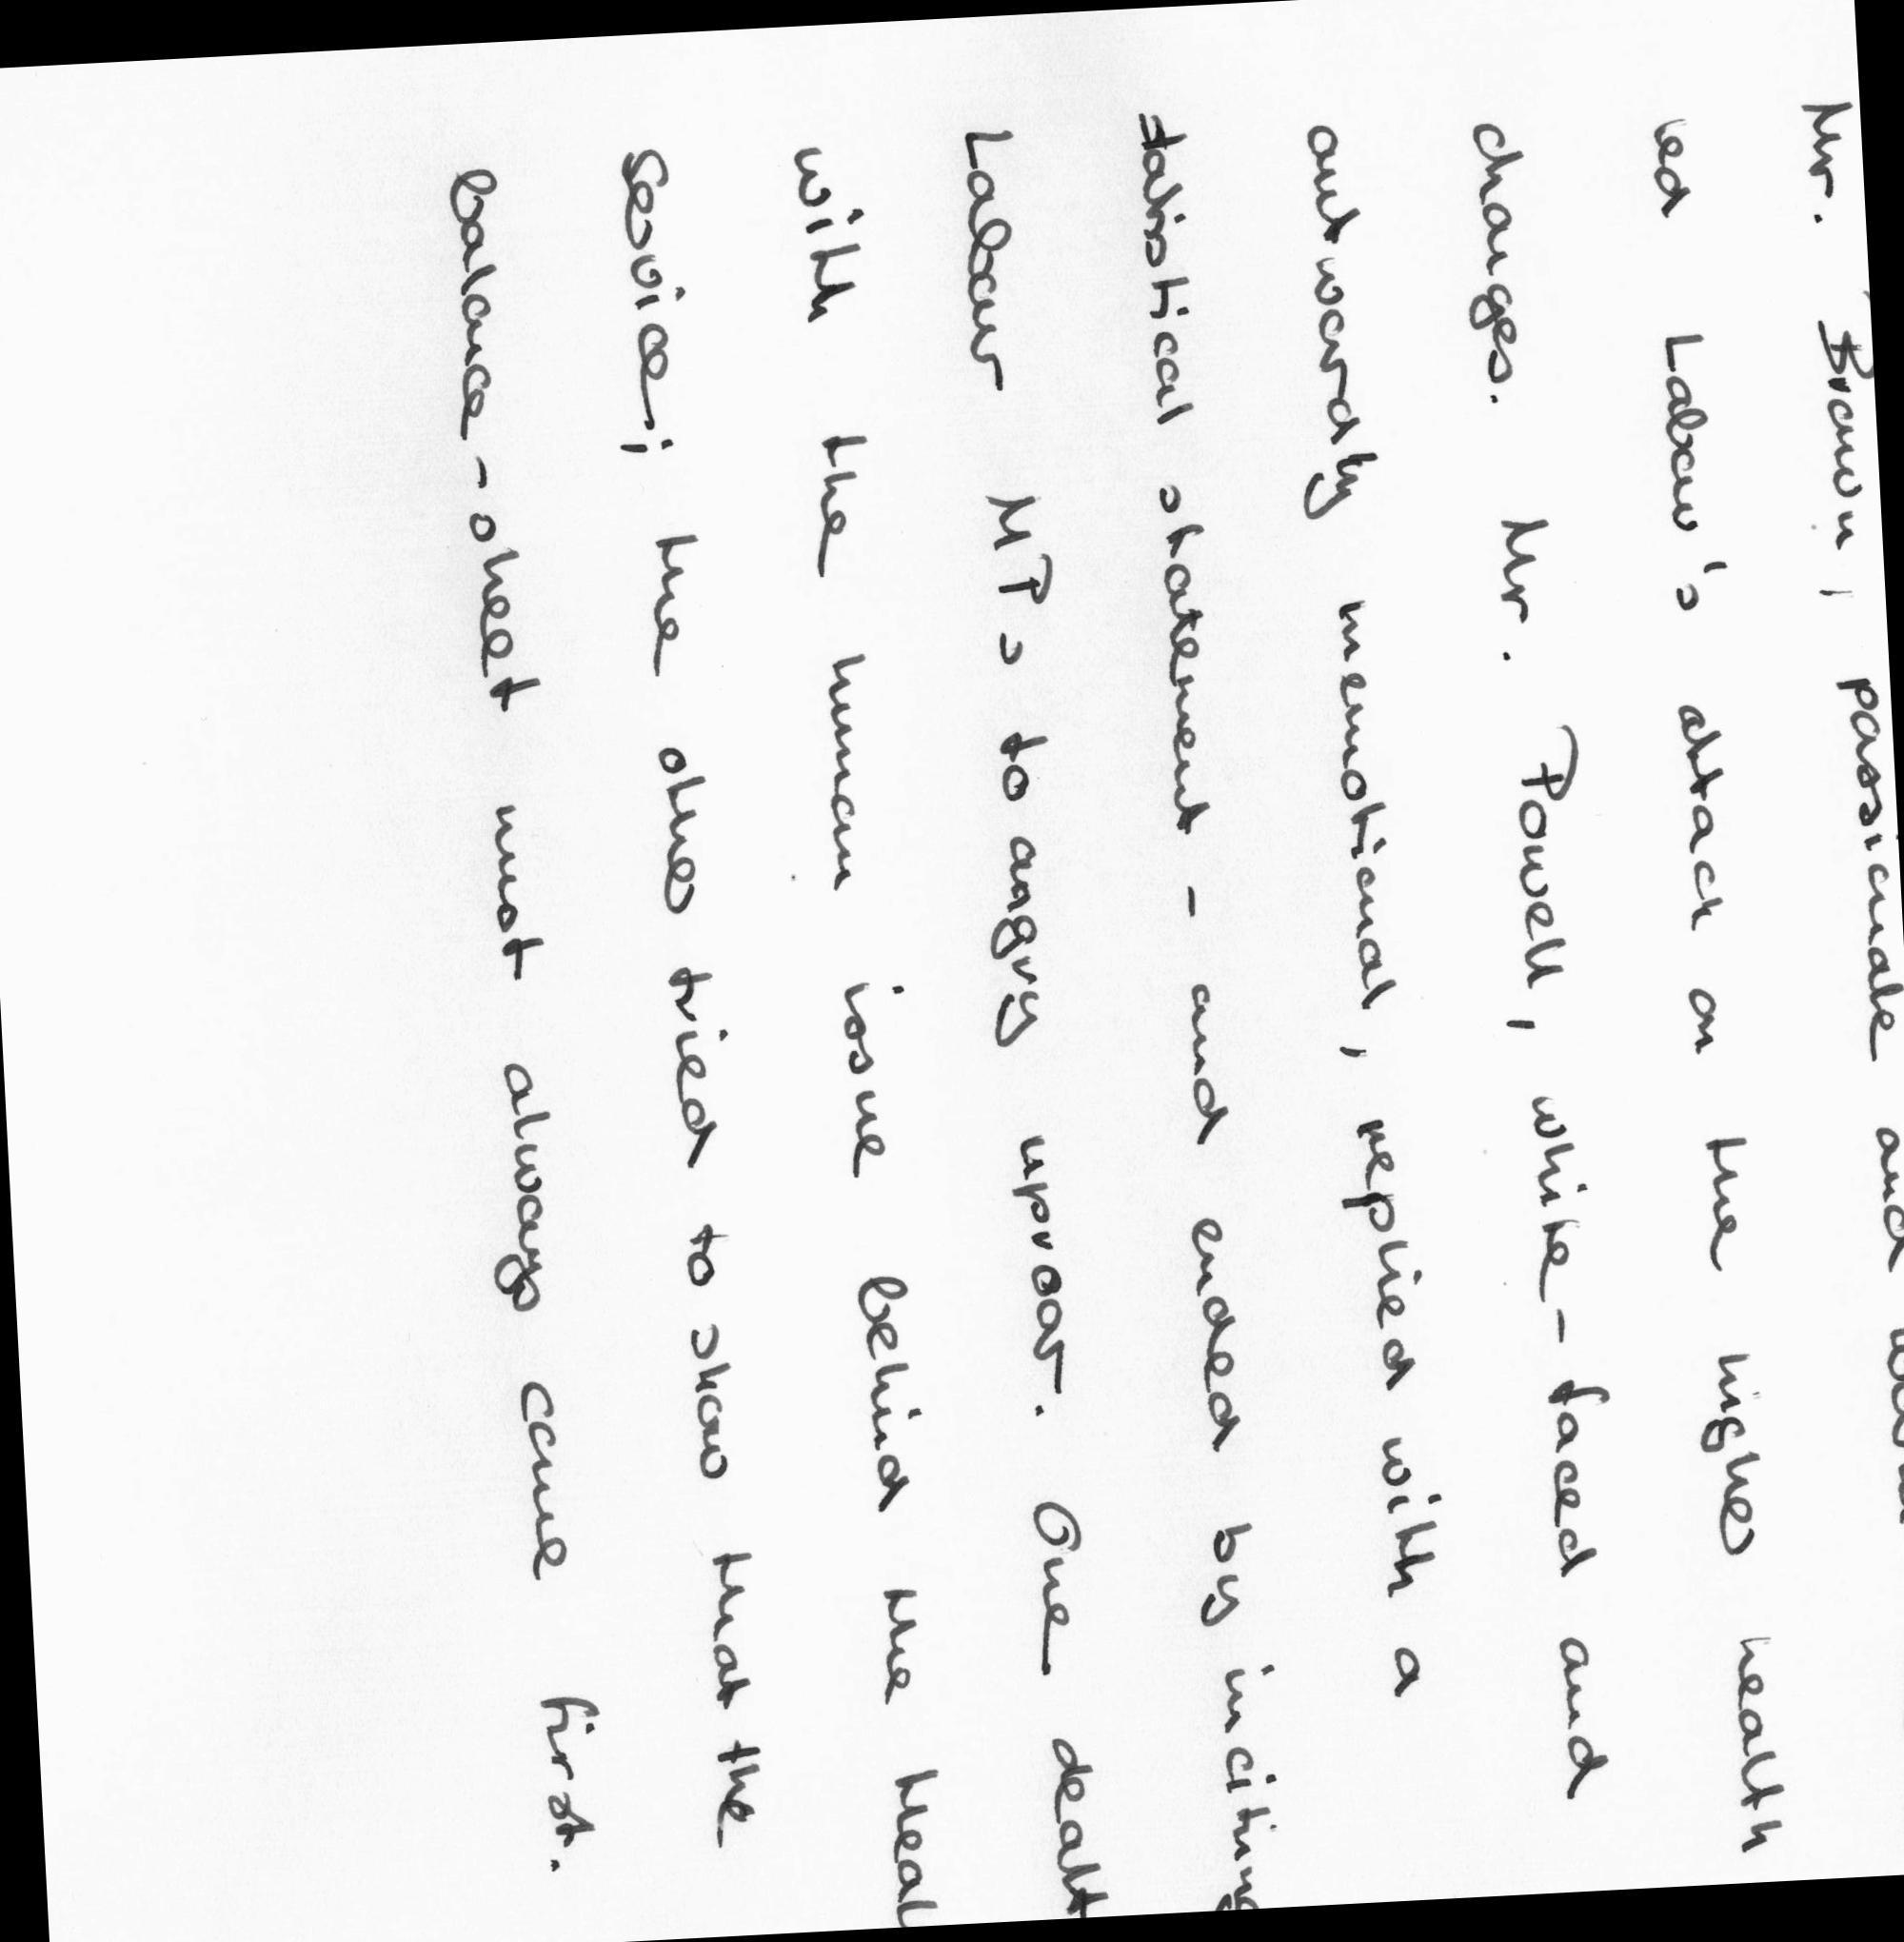 Mr. Brown, passionate and
led Labour's attack on the higher health
changes. Mr. Powell, white-faced and
outwardly unemotional, replied with a
statistical statement - and ended by inciting
Labour MPs to angry uproar. One dealt
with the human issue behind the Heal
Service; the other tried to show that the
balance-sheet must always come first.